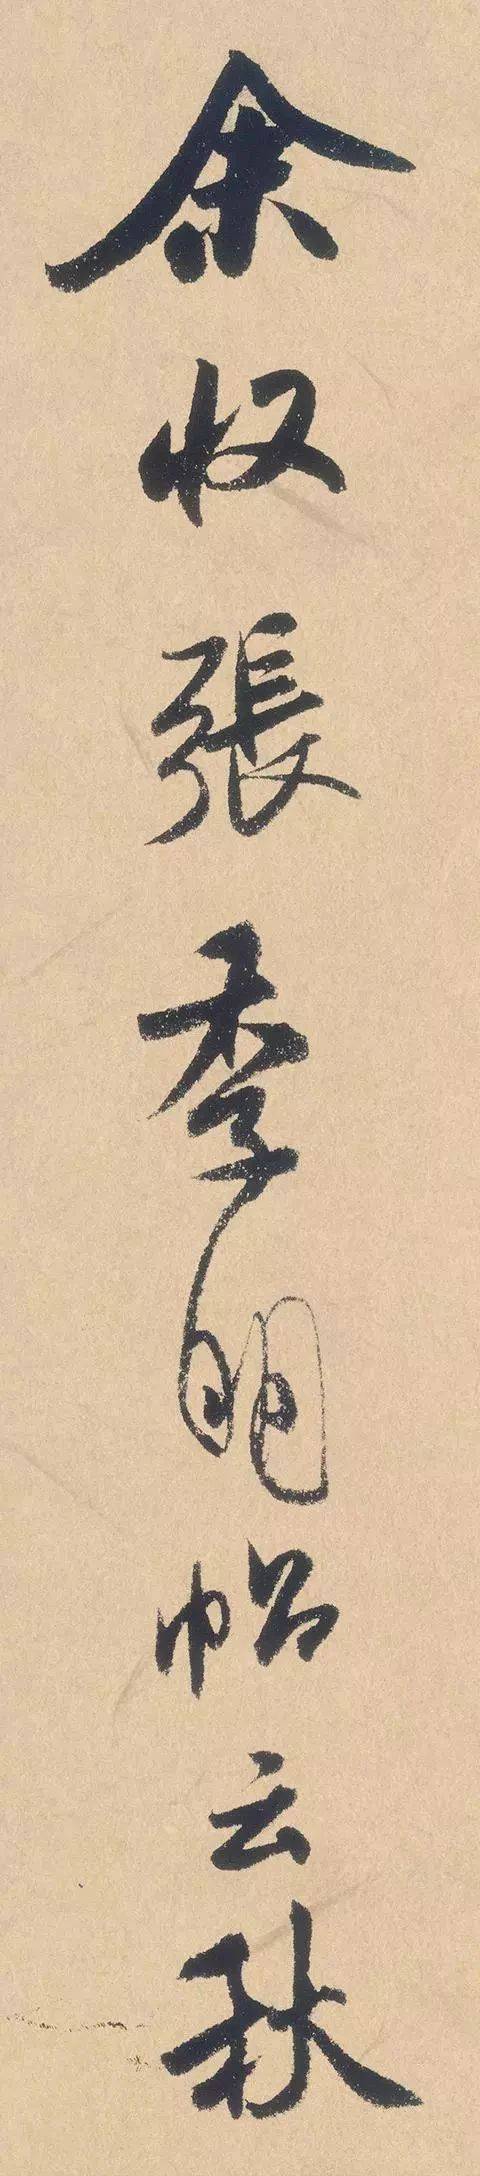 余收張季明帖云秋